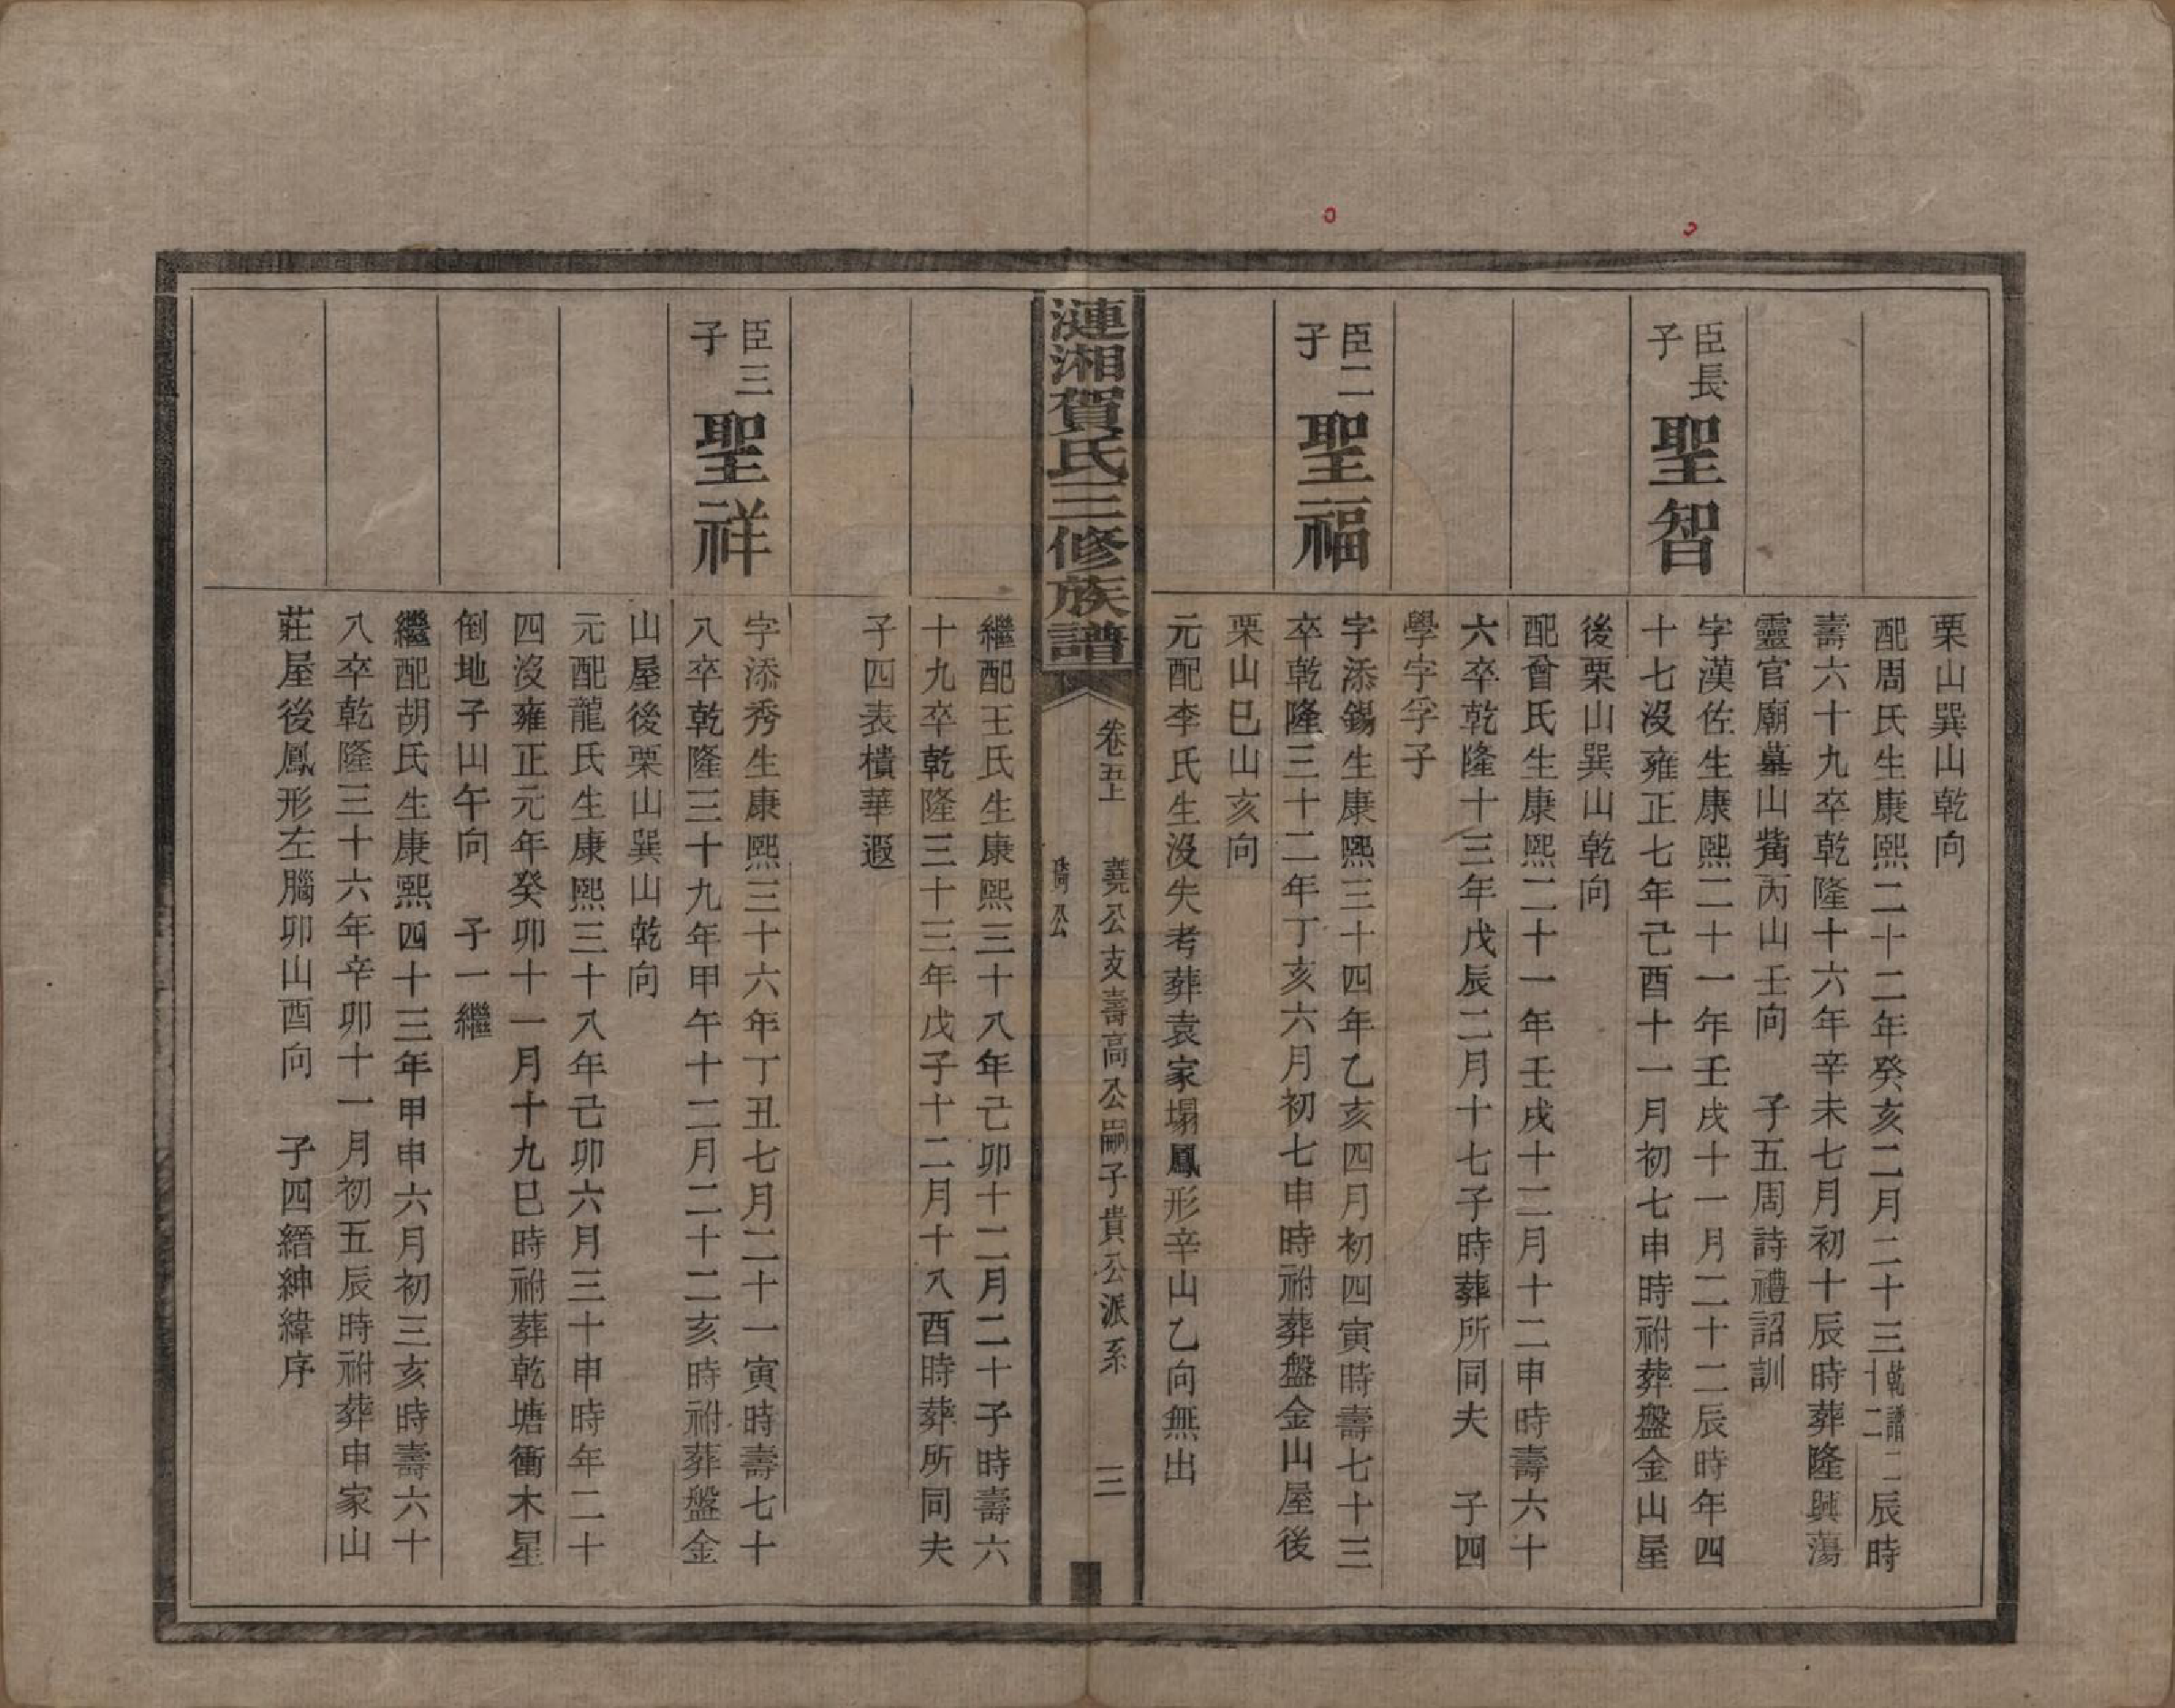 栗山巽山乾向
配周氏生康熙二十二年癸亥二月二十三乾譜十二二辰時
壽六十九卒乾隆十六年辛未七月初十辰時葬隆興蕩
靈官廟墓山觜丙山壬向　子五周詩禮詔訓
臣長子
聖智
字漢佐生康熙二十一年壬戌十一月二十二辰時年四
十七沒雍正七年己酉十一月初七申時祔葬盤金山屋
後栗山巽山乾向
配曾氏生康熙二十一年壬戌十二月十二申時壽六十
六卒乾隆十三年戊辰二月十七子時葬所同夫　子四
學字孚子
臣二子
聖福
字添錫生康熙三十四年乙亥四月初四寅時壽七十三
卒乾隆三十二年丁亥六月初七申時祔葬盤金山屋後
栗山巳山亥向
元配李氏生沒失考葬袁家塌鳳形辛山乙向無出
漣湘賀氏三修族譜
卷五上　蕘公支壽高公嗣子貴公派系　三
公
繼配王氏生康熙三十八年己卯十二月二十子時壽六
十九卒乾隆三十三年戊子十二月十八酉時葬所同夫
子四表樻華遐
臣三子
聖祥
字添秀生康熙三十六年丁丑七月二十一寅時壽七十
八卒乾隆三十九年甲午十二月二十二亥時祔葬盤金
山屋後栗山巽山乾向
元配龍氏生康熙三十八年己卯六月三十申時年二十
四沒雍正元年癸卯十一月十九巳時祔葬乾塘衝木星
倒地子山午向　子一繼
繼配胡氏生康熙四十三年甲申六月初三亥時壽六十
八卒乾隆三十六年辛卯十一月初五辰時祔葬申家山
莊屋後鳳形左腦卯山酉向　子四縉紳緯序